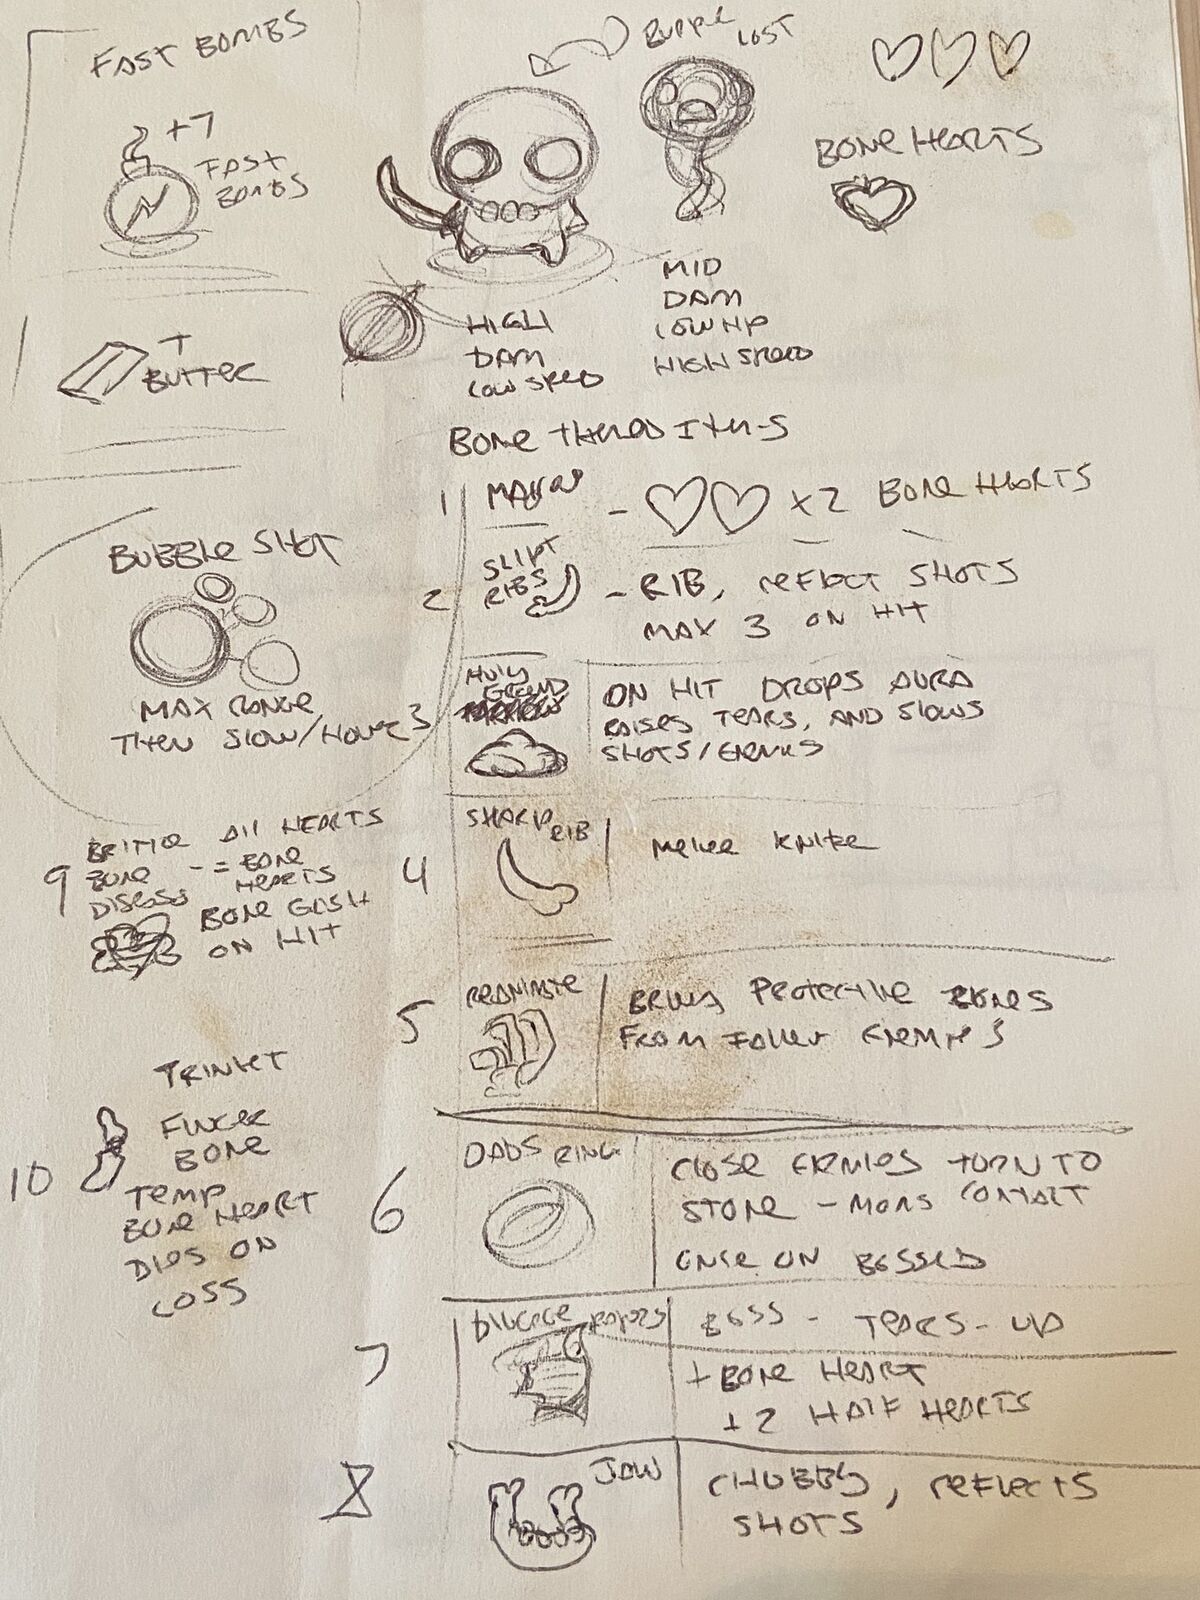 FAST BOMBS
+7
FAST
BOMBS
+
BUTTER
LOST
BONE HEARTS
HIGH
DAM
LOW SPEED
MID
DAM
LOW HP
HIGH SPEED
BONE THEMED ITEMS
1
- x2 BONE HEARTS
2
SLIPT
RIBS
- RIB, reflect SHOTS
MAX 3 ON HIT
3
GROUND
ON HIT DROPS AURA
RAISES TEARS, AND SLOWS
SHOTS/
BUBBLE SHOT
MAX RANGE
THEN SLOW/
4
SHARP RIB
Melee knife
9
BRITTLE
BONE
DISEASE
All HEARTS
- = BONE
HEARTS
BONE
ON HIT
5
REANIMATE
PROTECTIVE BONES
FROM
10
TRINKET
FINGER
BONE
TEMP
BONE HEART
DIES ON
LOSS
6
DADS RING
CLOSE TURN TO
STONE - MOMS CONTACT
ON
7
DIVORCE PAPERS
BOSS - TEARS-UP
+ BONE HEART
+ 2 HALF HEARTS
8
JAW
CHUBBY, reflects
SHOTS